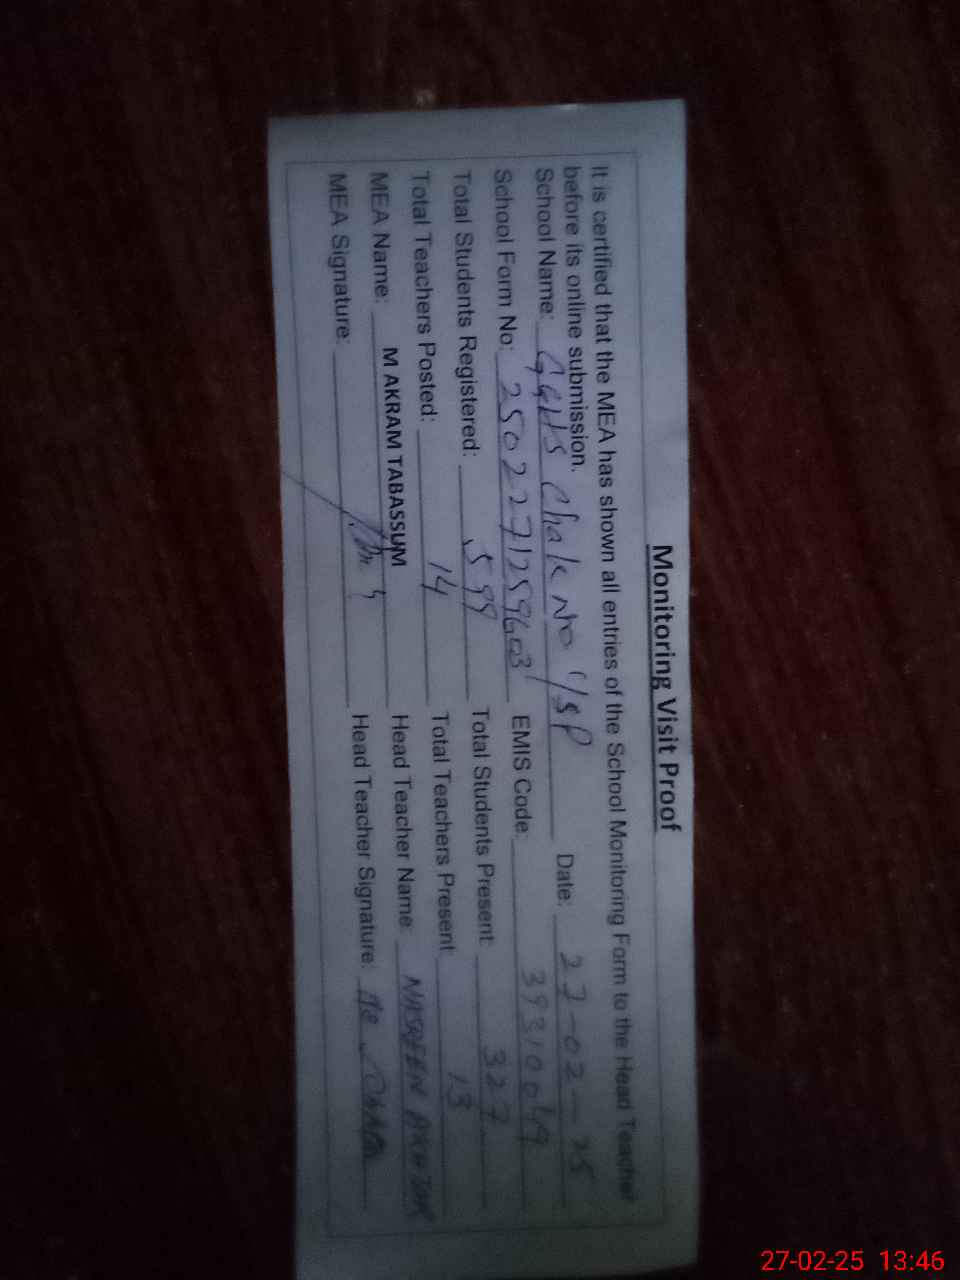 Monitoring Visit Proof
It is certified that the MEA has shown all entries of the School Monitoring Form to the Head Teacher
before its online submission.
School Name: GGHS Chak No 1/SP Date: 27-02-25
School Form No: 250227125960 EMIS Code: 39310049
Total Students Registered: 599 Total Students Present: 327
Total Teachers Posted: 14 Total Teachers Present: 13
MEA Name: M AKRAM TABASSUM Head Teacher Name: NASREEN AKHTAR
MEA Signature: Head Teacher Signature:
27-02-25 13:46